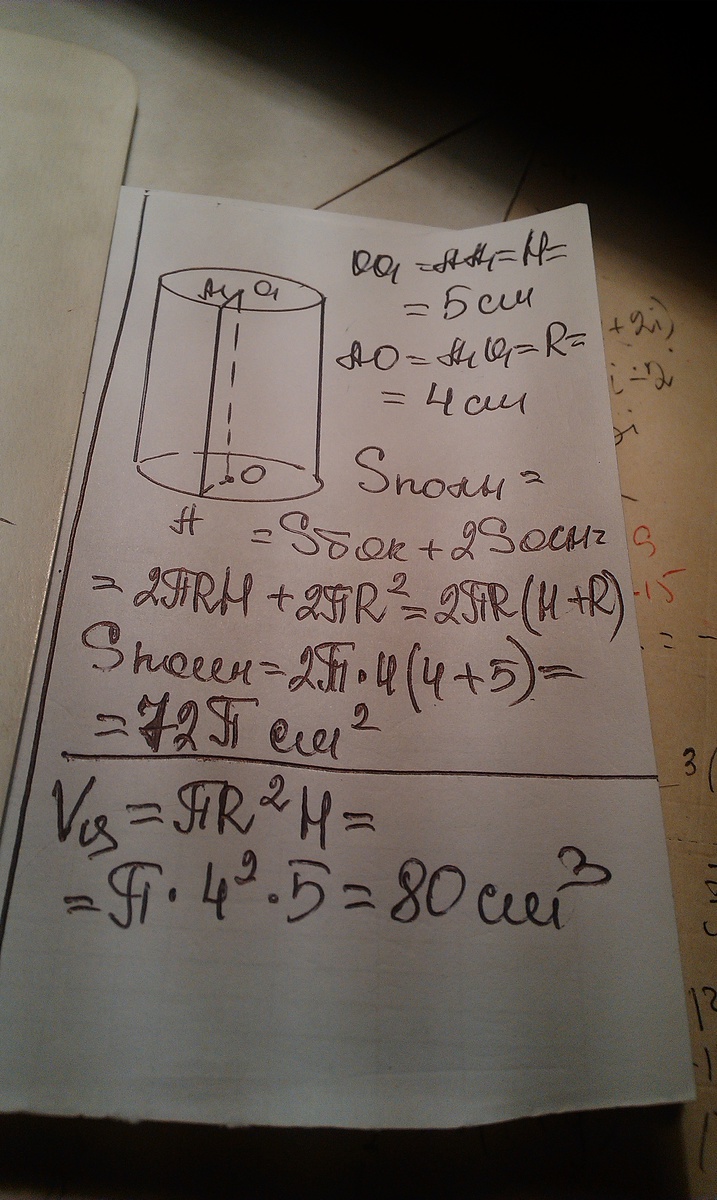 A₁ O₁
O
A
OO₁ = AA₁ = H =
= 5 см
AO = A₁O₁ = R =
= 4 см
Sполн =
= Sбок + 2Sосн =
= 2πRH + 2πR² = 2πR(H+R)
Sполн = 2π·4(4+5) =
= 72π см²
Vц = πR²H =
= π·4²·5 = 80 см³
+2i)